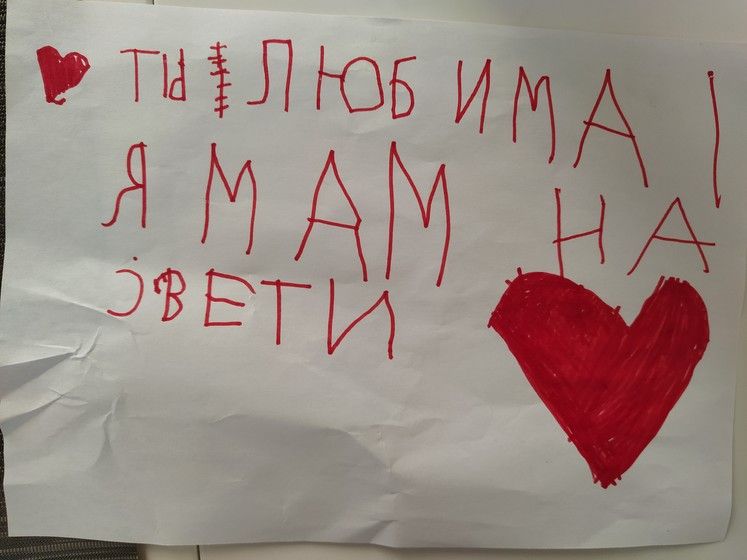 ТЫ ЛЮБИМА
Я МАМ НА
СВЕТИ